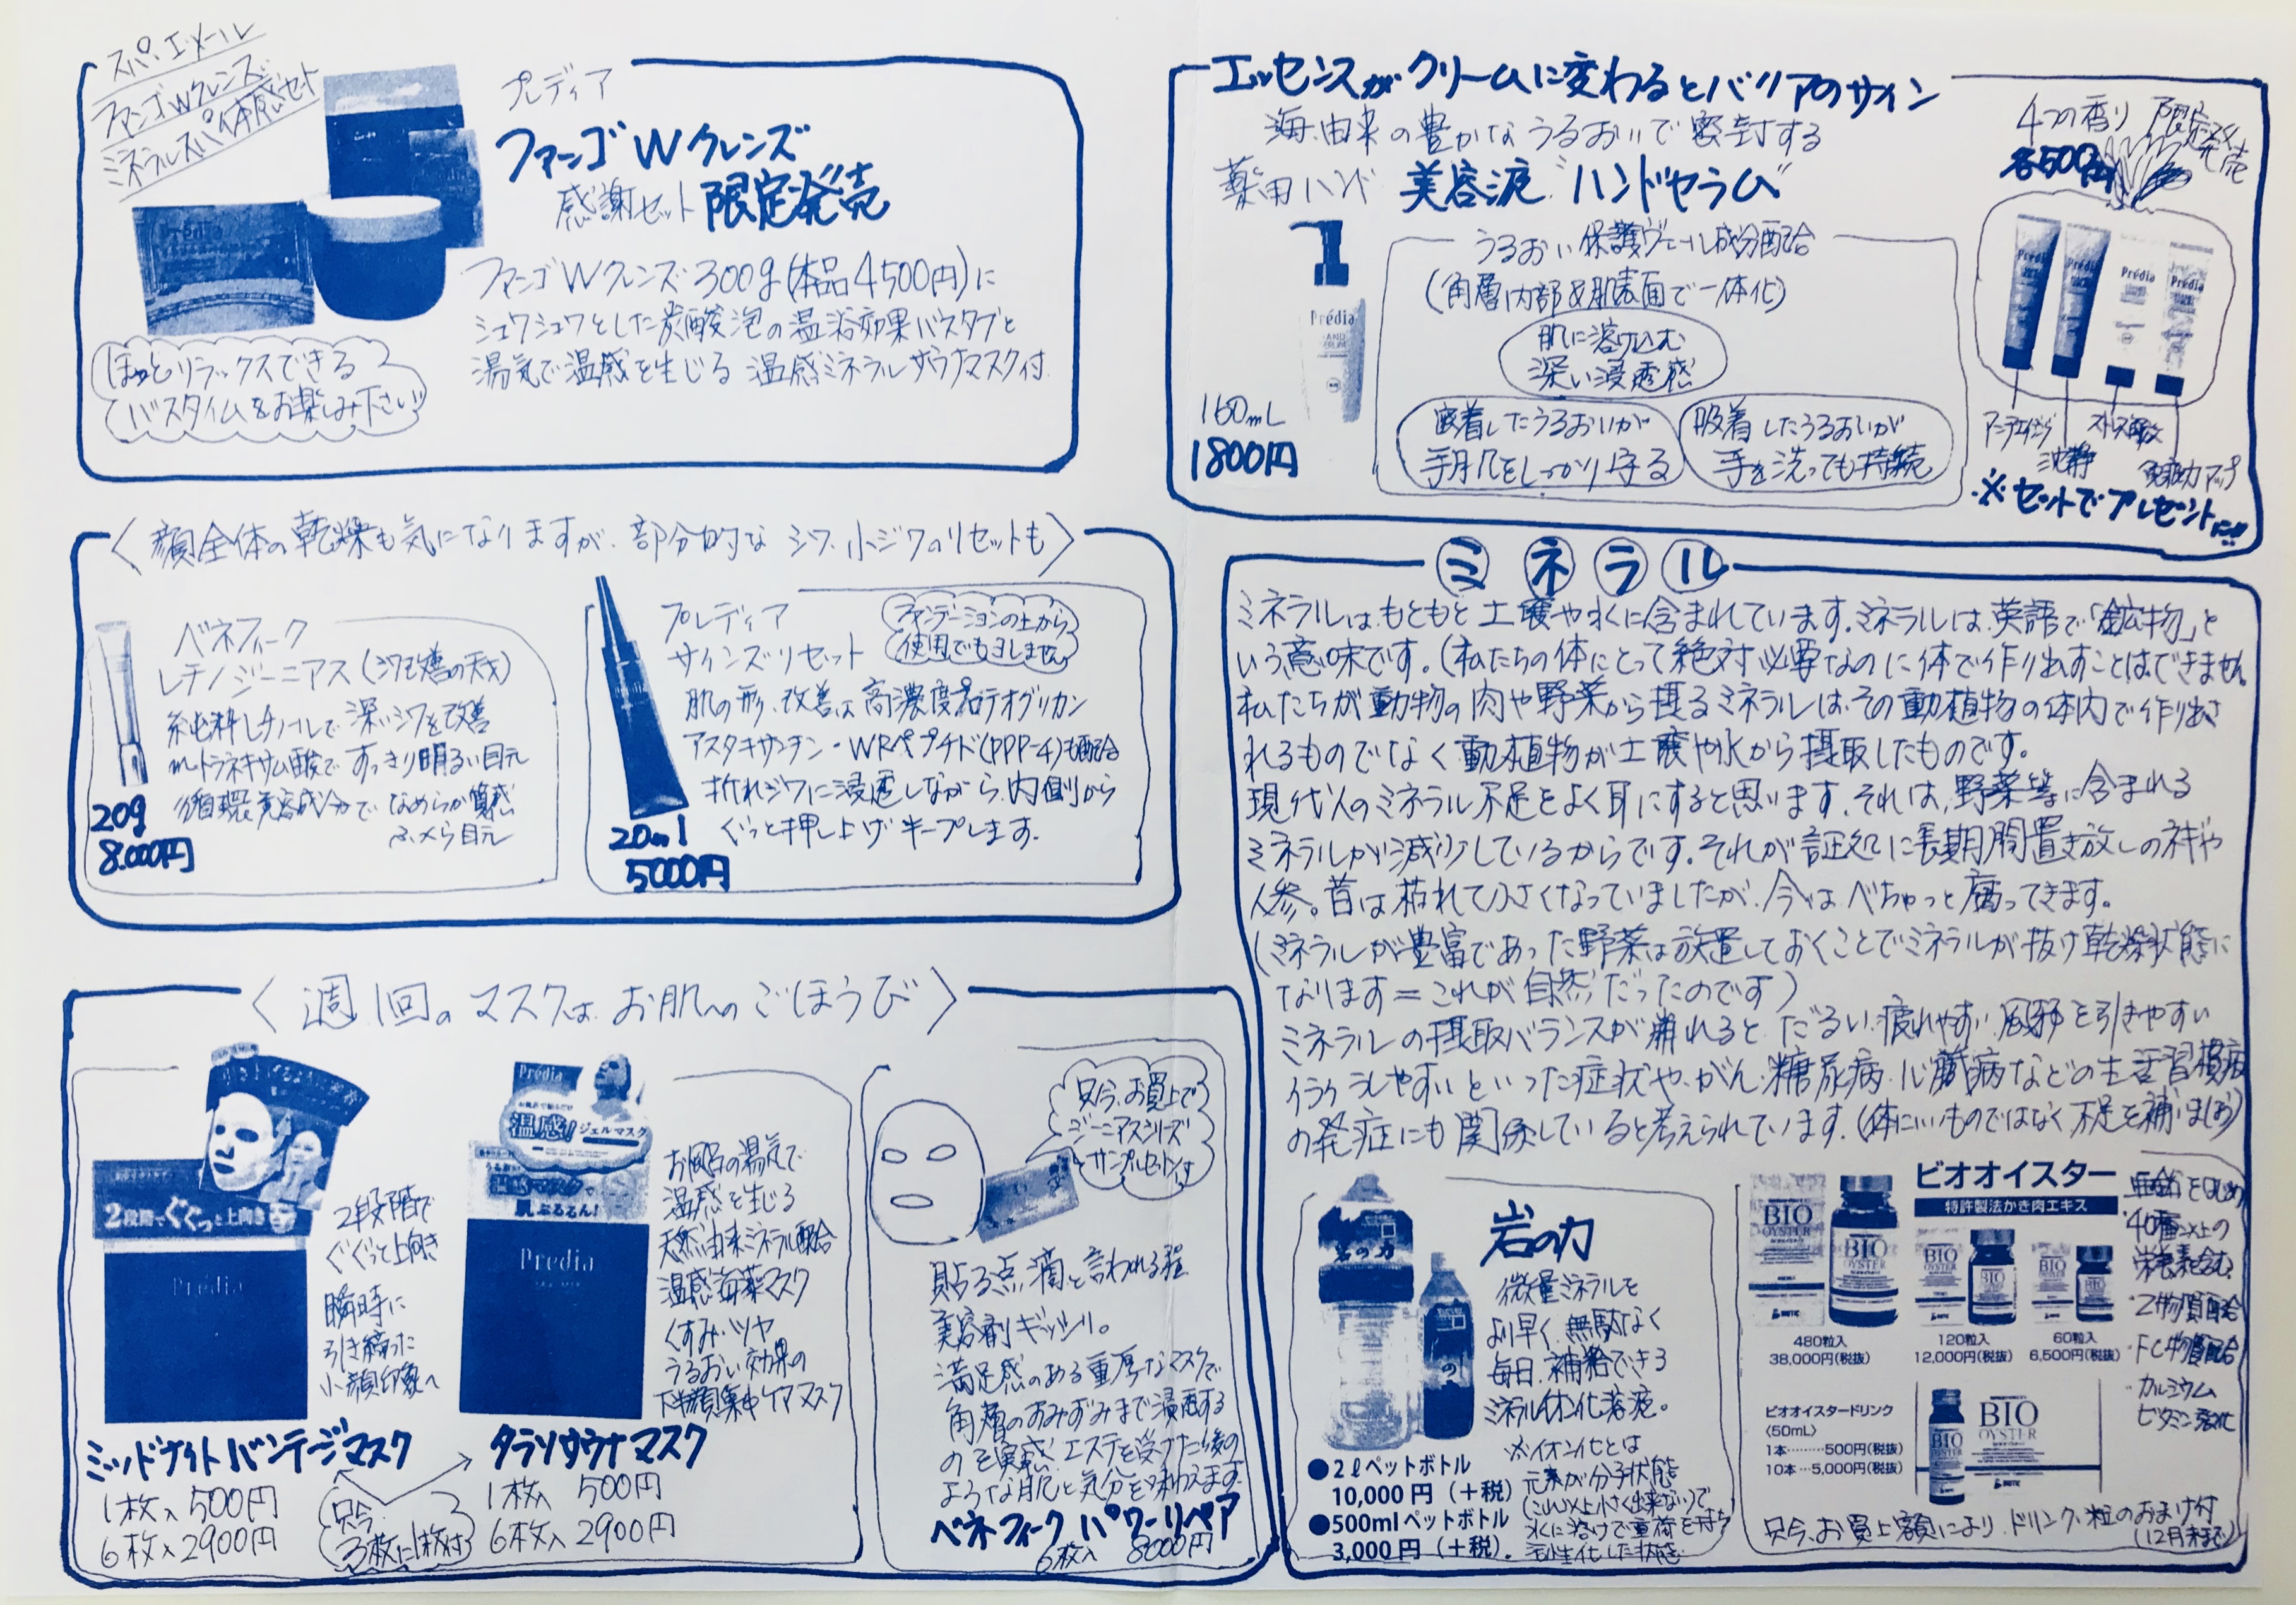 スパ・エ・メール
ファンゴWクレンズ
ミネラルスパ体感セット
プレディア
ファンゴWクレンズ
感謝セット 限定発売
Prédia
ファンゴWクレンズ300g(本品4500円)に
シュワシュワとした炭酸泡の温浴効果バスタブと
湯気で温感を生じる 温感ミネラルサウナマスク付
ほっとリラックスできる
バスタイムをお楽しみ下さい
エッセンスがクリームに変わるとバリアのサイン
海由来の豊かなうるおいで密封する
薬用ハンド 美容液 "ハンドセラム"
4つの香り 限定発売
各500円
うるおい保護ヴェール成分配合
(角層内部&肌表面で一体化)
肌に溶け込む
深い浸透感
密着したうるおいが
手肌をしっかり守る
吸着したうるおいが
手を洗っても持続
Prédia
160mL
1800円
Prédia
Prédia
Prédia
Prédia
アンチエイジング
沈静
ストレス解放
免疫力アップ
※セットでプレゼントに!!
〈顔全体の乾燥も気になりますが、部分的なシワ、小ジワのリセットも〉
ベネフィーク
レチノジーニアス(シワ改善の天才)
純粋レチノールで深いシワを改善
m-トラネキサム酸ですっきり明るい目元
循環美容成分でなめらか質感
ふっくら目元
20g
8.000円
プレディア
サインズリセット
ファンデーションの上から
使用でもヨレません
肌の形、改善は高濃度プロテオグリカン
アスタキサンチン・WRペプチド(PPP-4)も配合
折れジワに浸透しながら、内側から
ぐっと押し上げキープします。
20ml
5000円
ミネラル
ミネラルはもともと土壌や水に含まれています。ミネラルは英語で「鉱物」と
いう意味です。(私たちの体にとって絶対必要なのに体で作り出すことはできません
私たちが動物の肉や野菜から摂るミネラルは、その動植物の体内で作り出さ
れるものでなく動植物が土壌や水から摂取したものです。
現代人のミネラル不足をよく耳にすると思います。それは、野菜等に含まれる
ミネラルが減少しているからです。それが証処に長期間置き放しのネギや
人参。昔は枯れて小さくなっていましたが、今はべちゃっと腐ってきます。
(ミネラルが豊富であった野菜は放置しておくことでミネラルが抜け乾燥状態に
なります=これが自然だったのです)
ミネラルの摂取バランスが崩れると、だるい、疲れやすい、風邪を引きやすい
イライラしやすいといった症状や、がん、糖尿病、心臓病などの生活習慣病
の発症にも関係していると考えられています。(体にいいものではなく不足を補いましょう)
〈週1回のマスクは、お肌へのごほうび〉
2段階でぐぐっと上向き
Prédia
2段階で
ぐぐっと上向き
瞬時に
引き締った
小顔印象へ
ミッドナイトバンテージマスク
1枚入 500円
6枚入 2900円
只今
3枚に1枚付
Prédia
温感!ジェルマスク
肌ぷるるん!
Predia
お風呂の湯気で
温感を生じる
天然由来ミネラル配合
温感海藻マスク
くすみ・ツヤ
うるおい効果の
下半顔集中ケアマスク
タラソサウナマスク
1枚入 500円
6枚入 2900円
只今、お買上で
ジーニアスシリーズ
サンプルセット付
貼る点滴と言われる程
美容剤ギッシリ。
満足感のある重厚なマスクで
角層のすみずみまで浸透する
のを実感!エステを受けた後の
ような肌と気分を味わえます
ベネフィーク パワーリペア
6枚入 8000円
岩の力
岩の力
微量ミネラルを
より早く、無駄なく
毎日、補給できる
ミネラルイオン化溶液。
※イオン化とは
元素が分子状態
(これ以上小さく出来ない)で
水に溶けて電荷を持ち
活性化した状態
●2ℓペットボトル
10,000円(+税)
●500mlペットボトル
3,000円(+税)
ビオオイスター
特許製法かき肉エキス
BIO
OYSTER
BIO
OYSTER
BIO
OYSTER
BIO
OYSTER
BIO
OYSTER
BIO
OYSTER
480粒入
38,000円(税抜)
120粒入
12,000円(税抜)
60粒入
6,500円(税抜)
亜鉛をはじめ
40種以上の
栄養素を含む
・Z物質配合
・FC物質配合
・カルシウム
ビタミン活化
ビオオイスタードリンク
〈50mL〉
1本………500円(税抜)
10本…5,000円(税抜)
BIO
OYSTER
BIO
OYSTER
只今、お買上額により、ドリンク、粒のおまけ付
(12月末まで)